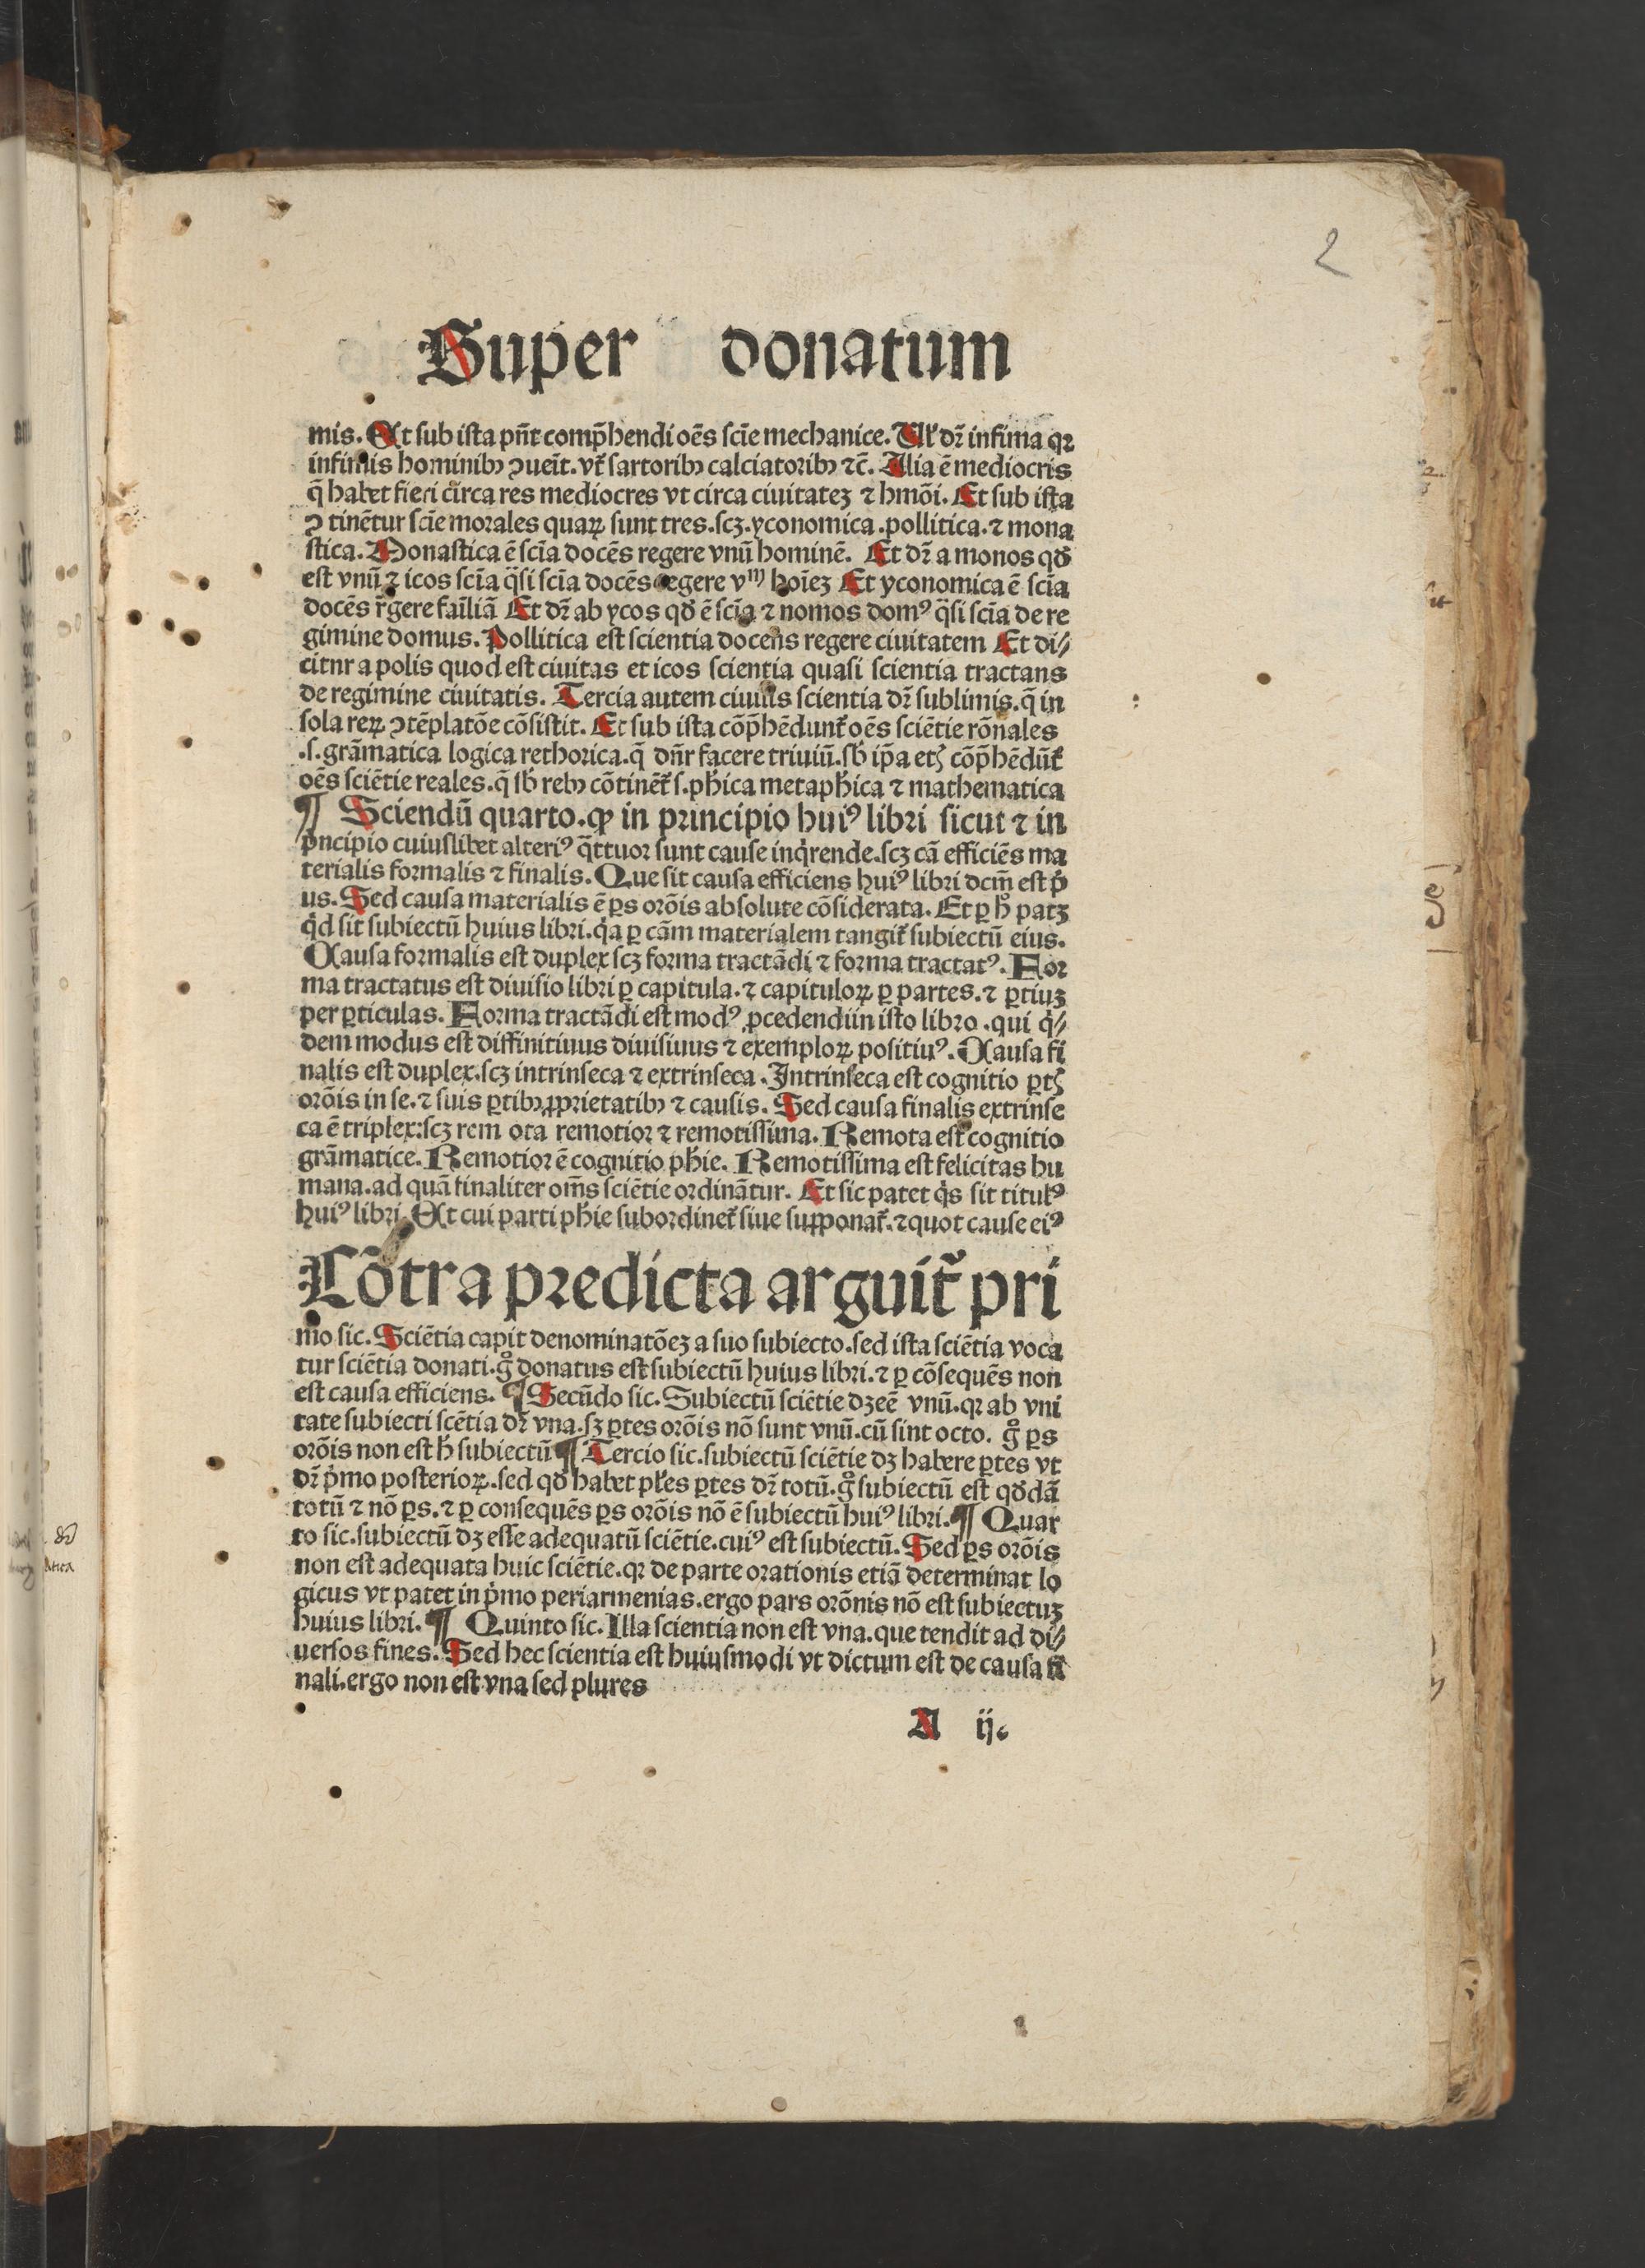 2
Super donatum
mis. Et sub ista pñt comp̄hendi oēs scīe mechanice. Ul̓ dr̄ infima qꝛ
infimis hominibꝫ ꝯueīt. vt̓ sartoribꝫ calciatoribꝫ ꝛc̄. Alia ē mediocris
q̄ habet fieri circa res mediocres vt circa ciuitateꝫ ꝛ hmōi. Et sub ista
ꝯ tinētur scīe morales quaꝝ sunt tres. scꝫ. yconomica .pollitica. ꝛ mona
stica. Monastica ē scīa docēs regere vnū hominē. Et dr̄ a monos qð
est vnū ꝛ icos scīa q̈si scīa docēs regere vnū hoīeꝫ Et yconomica ē scīa
docēs r̄gere faīliā Et dr̄ ab ycos qð ē scīa ꝛ nomos domꝰ q̈si scīa de re
gimine domus. Pollitica est scientia docens regere ciuitatem Et di⸗
citnr a polis quod est ciuitas et icos scientia quasi scientia tractans
de regimine ciuitatis. Tercia autem ciuilis scientia dr̄ sublimis. q̄ in
sola reꝝ ꝯtēplatōe cōsistit. Et sub ista cōp̄hēdunt̓ oēs sciētie rōnales
.s. grāmatica logica rethorica. q̄ dn̄r facere triuiū. sb̓ ip̄a etꝫ cōp̄hēdūt̓
oēs sciētie reales. q̄ sb̓ rebꝫ cōtinēt̓ s. ph̓ica metaph̓ica ꝛ mathematica
¶ Sciendū quarto. ꝙ in principio huiꝰ libri sicut ꝛ in
pͥncipio cuiuslibet alteriꝰ q̄ttuor sunt cause inqͥrende. scꝫ cā efficiēs ma
terialis formalis ꝛ finalis. Que sit causa efficiens huiꝰ libri dcm̄ est pͥ
us. Sed causa materialis ē ꝑs orōis absolute cōsiderata. Et ꝑ h̓ patꝫ
qͥd sit subiectū huius libri. qͥa ꝑ cām materialem tangit̓ subiectū eius.
Causa formalis est duplex scꝫ forma tractādi ꝛ forma tractatꝰ. For
ma tractatus est diuisio libri ꝑ capitula. ꝛ capituloꝝ ꝑ partes. ꝛ ꝑtiuꝫ
per ꝑticulas. Forma tractādi est modꝰ ꝓcedendi in isto libro .qui qͥ⸗
dem modus est diffinitiuus diuisiuus ꝛ exemploꝝ positiuꝰ. Causa fi
nalis est duplex. scꝫ intrinseca ꝛ extrinseca. Intrinseca est cognitio ꝑtꝫ
orōis in se. ꝛ suis ꝑtibꝫ ꝓprietatibꝫ ꝛ causis. Sed causa finalis extrinse
ca ē triplex: scꝫ rem ota remotior ꝛ remotissima. Remota est cognitio
grāmatice. Remotior ē cognitio ph̓ie. Remotissima est felicitas hu
mana. ad quā finaliter om̄s sciētie ordinātur. Et sic patet qͥs sit titulꝰ
huiꝰ libri. Et cui parti ph̓ie subordinet̓ siue supponat̓. ꝛ quot cause eiꝰ
Cōtra predicta arguit̓ pri
mo sic. Sciētia capit denominatōeꝫ a suo subiecto. sed ista sciētia voca
tur sciētia donati. gͦ donatus est subiectū huius libri. ꝛ ꝑ cōsequēs non
est causa efficiens. ¶ Secūdo sic. Subiectū sciētie dꝫ eē vnū. qꝛ ab vni
tate subiecti scētia dr̄ vna. sꝫ ꝑtes orōis nō sunt vnū. cū sint octo. gͦ ꝑs
orōis non est h̓ subiectū ¶ Tercio sic. subiectū sciētie dꝫ habere ꝑtes vt
dr̄ pͥmo posterioꝝ. sed qð habet pl̓es ꝑtes dr̄ totū. gͦ subiectū est qðdā
totū ꝛ nō ꝑs. ꝛ ꝑ consequēs ꝑs orōis nō ē subiectū huiꝰ libri. ¶ Quar
to sic. subiectū dꝫ esse adequatū sciētie. cuiꝰ est subiectū. Sed ꝑs orōis
non est adequata huic sciētie. qꝛ de parte orationis etiā determinat lo
gicus vt patet in pͥmo periarmenias. ergo pars orōnis nō est subiectuꝫ
huius libri. ¶ Quinto sic. Illa scientia non est vna. que tendit ad di⸗
uersos fines. Sed hec scientia est huiusmodi vt dictum est de causa fi
nali. ergo non est vna sed plures
A ij.